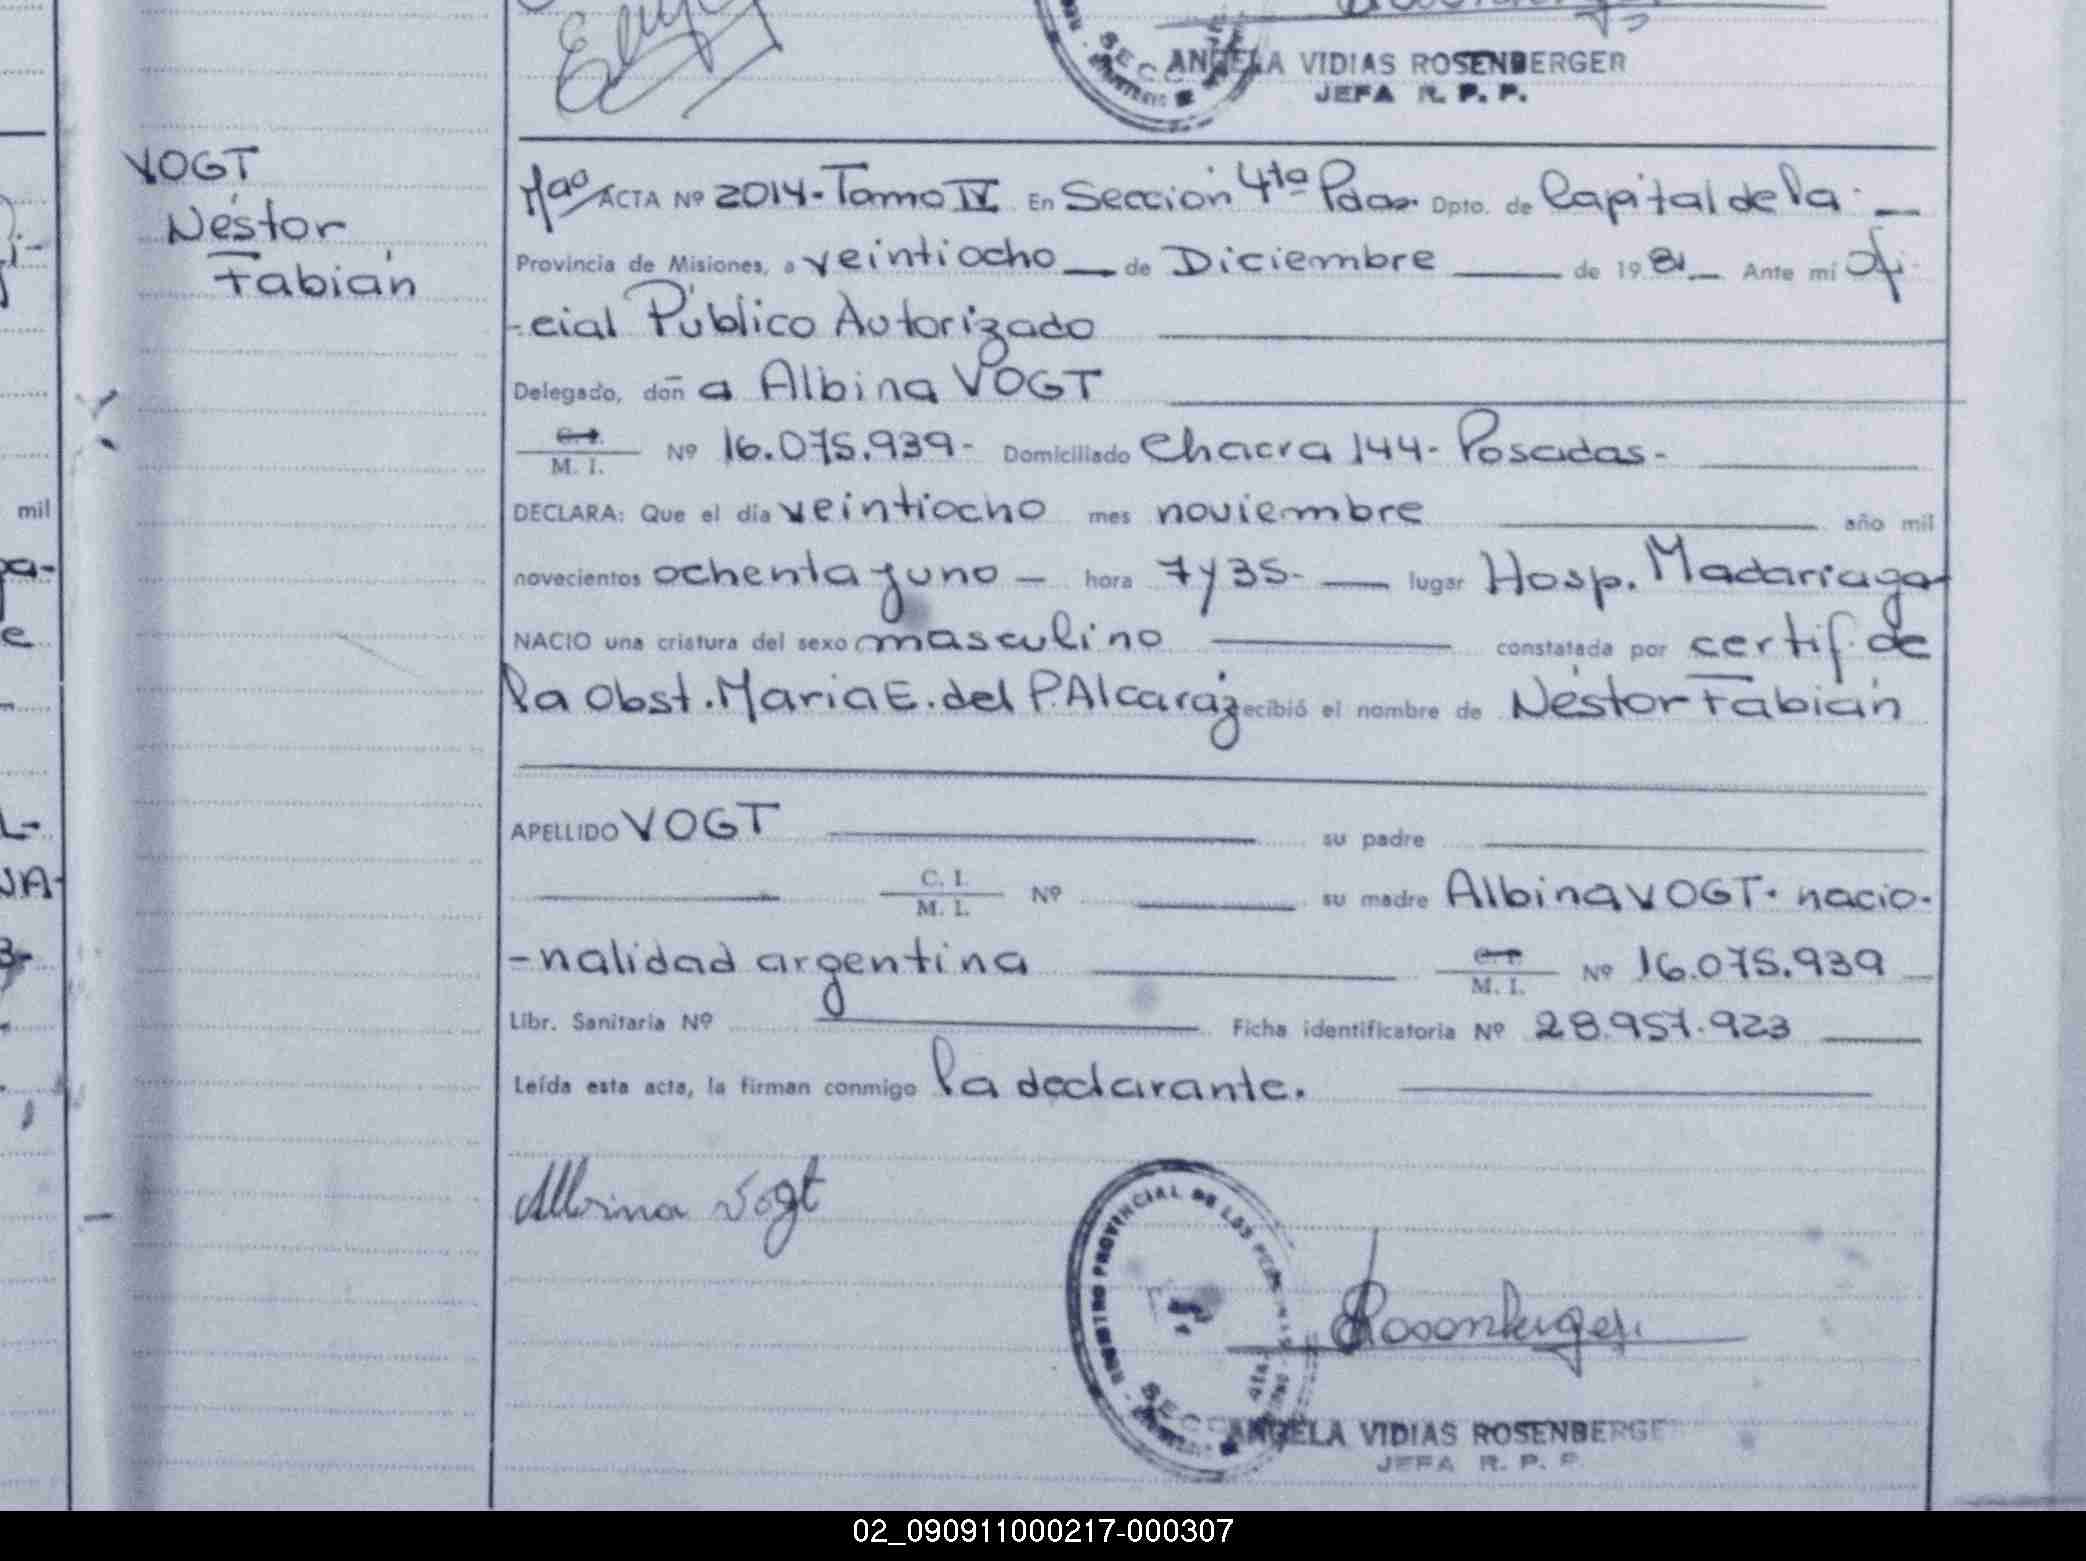 ANGELA VIDIAS ROSENBERGER
JEFA R. P. P.
VOGT
Néstor
Fabián
ACTA Nº 2014-Tomo IV En Sección 4ta Pdas. Dpto. de Capital de la
Provincia de Misiones, a veintiocho de Diciembre de 1981 Ante mí Ofi-
-cial Público Autorizado
Delegado, doñ a Albina VOGT
C. I. / M. I. Nº 16.075.939- Domiciliado Chacra 144- Posadas-
DECLARA: Que el día veintiocho mes noviembre año mil
novecientos ochenta y uno hora 7 y 35- lugar Hosp. Madariaga
NACIO una criatura del sexo masculino constatada por certif. de
la Obst. Maria E. del P. Alcaráz recibió el nombre de Néstor Fabián
APELLIDO VOGT su padre
C. I. / M. I. Nº su madre Albina VOGT. nacio-
-nalidad argentina C. I. / M. I. Nº 16.075.939
Libr. Sanitaria Nº Ficha identificatoria Nº 28.957.923
Leída esta acta, la firman conmigo la declarante.
Albina Vogt
REGISTRO PROVINCIAL DE LAS PERSONAS
Rosenberger
ANGELA VIDIAS ROSENBERGE
JEFA R. P. P.
02_090911000217-000307